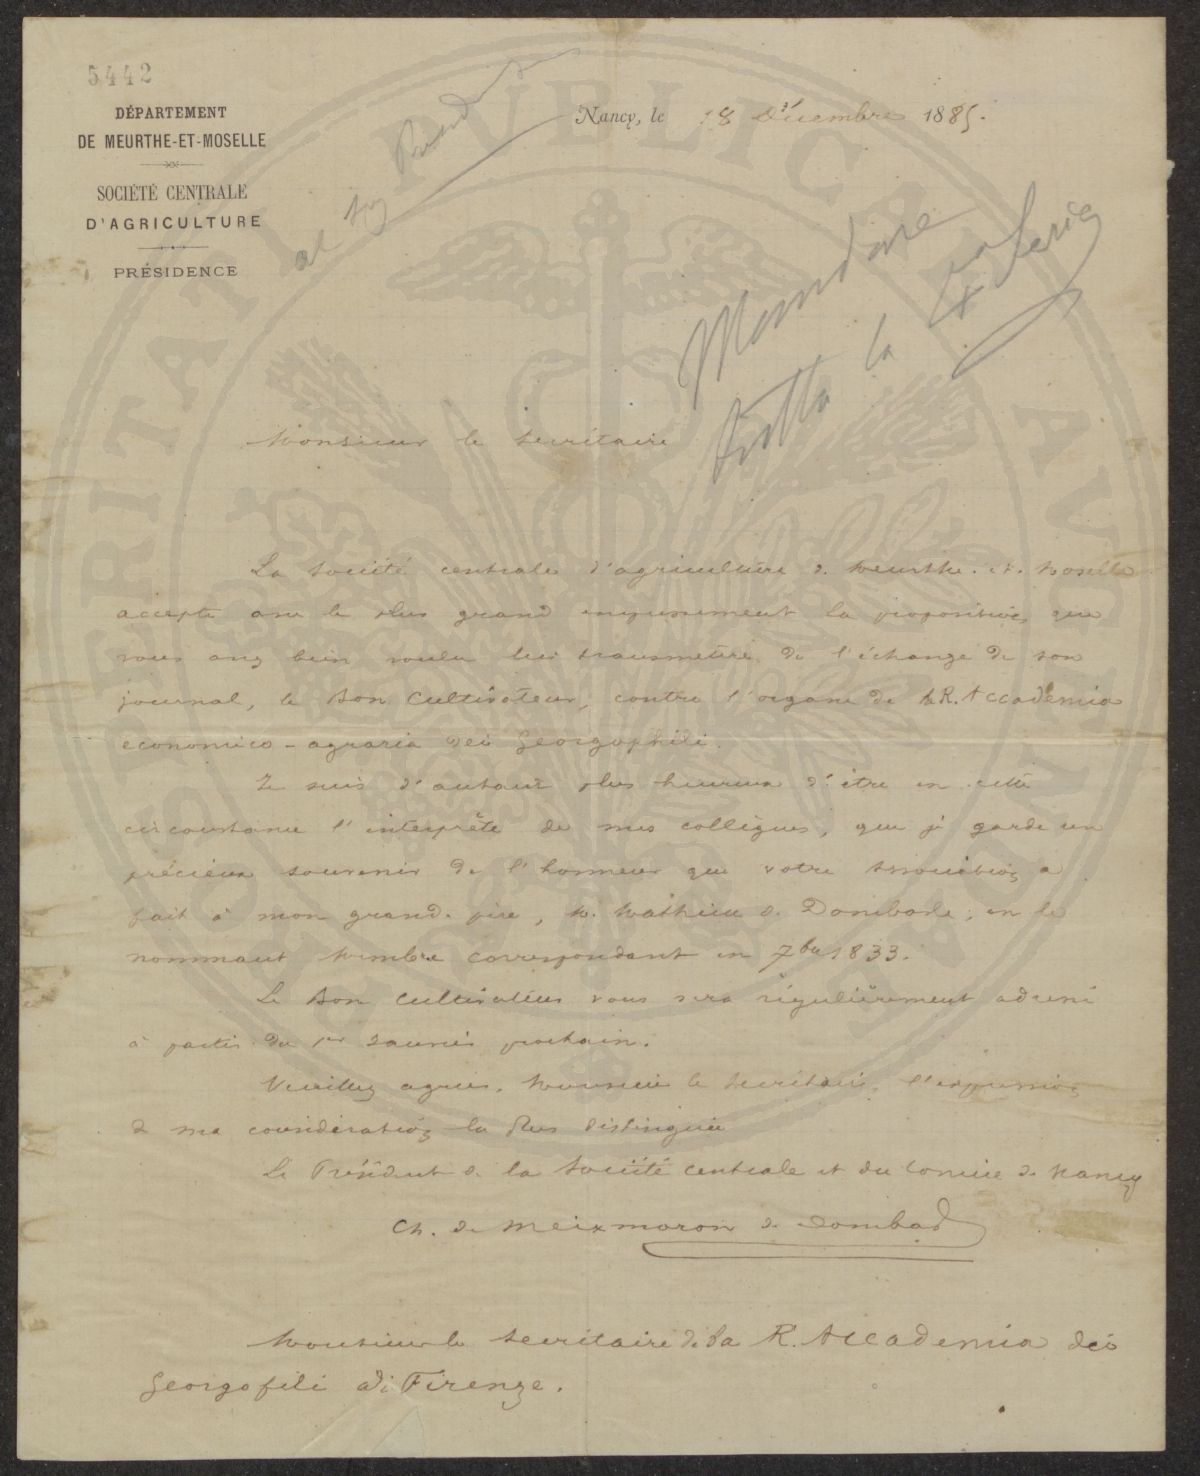 5442
DÉPARTEMENT
DE MEURTHE-ET-MOSELLE
SOCIÉTÉ CENTRALE
D'AGRICULTURE
PRÉSIDENCE
Nancy, le 18 Décembre 1885.
al Sig Presidente
Mandare
sotto la
Monsieur le Secrétaire
La Société centrale d'agriculture de Meurthe-et-Moselle
accepte avec le plus grand empressement la proposition que
vous avez bien voulu lui transmettre de l'échange de son
journal, le Bon Cultivateur, contre l'organe de la R. Accademia
economico-agraria dei Georgophili.
Je suis d'autant plus heureux d'être en cette
circonstance l'interprète de mes collègues, que je garde un
précieux souvenir de l'honneur que votre association a
fait à mon grand-père, M. Mathieu de Dombasle, en le
nommant Membre correspondant en 7bre 1833.
Le Bon Cultivateur vous sera régulièrement adressé
à partir du 1er Janvier prochain.
Veuillez agréer, Monsieur le Secrétaire, l'expression
de ma considération la plus distinguée
Le Président de la Société centrale et du Comice de Nancy
Ch. de Meixmoron de Dombasle
Monsieur le Secrétaire de la R. Accademia dei
Georgofili di Firenze.
PROSPERITATI PUBLICAE AUGENDAE